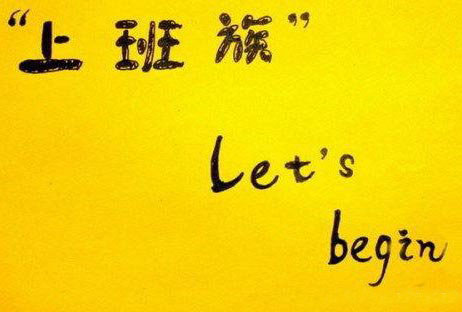 “上班族”
Let's
begin